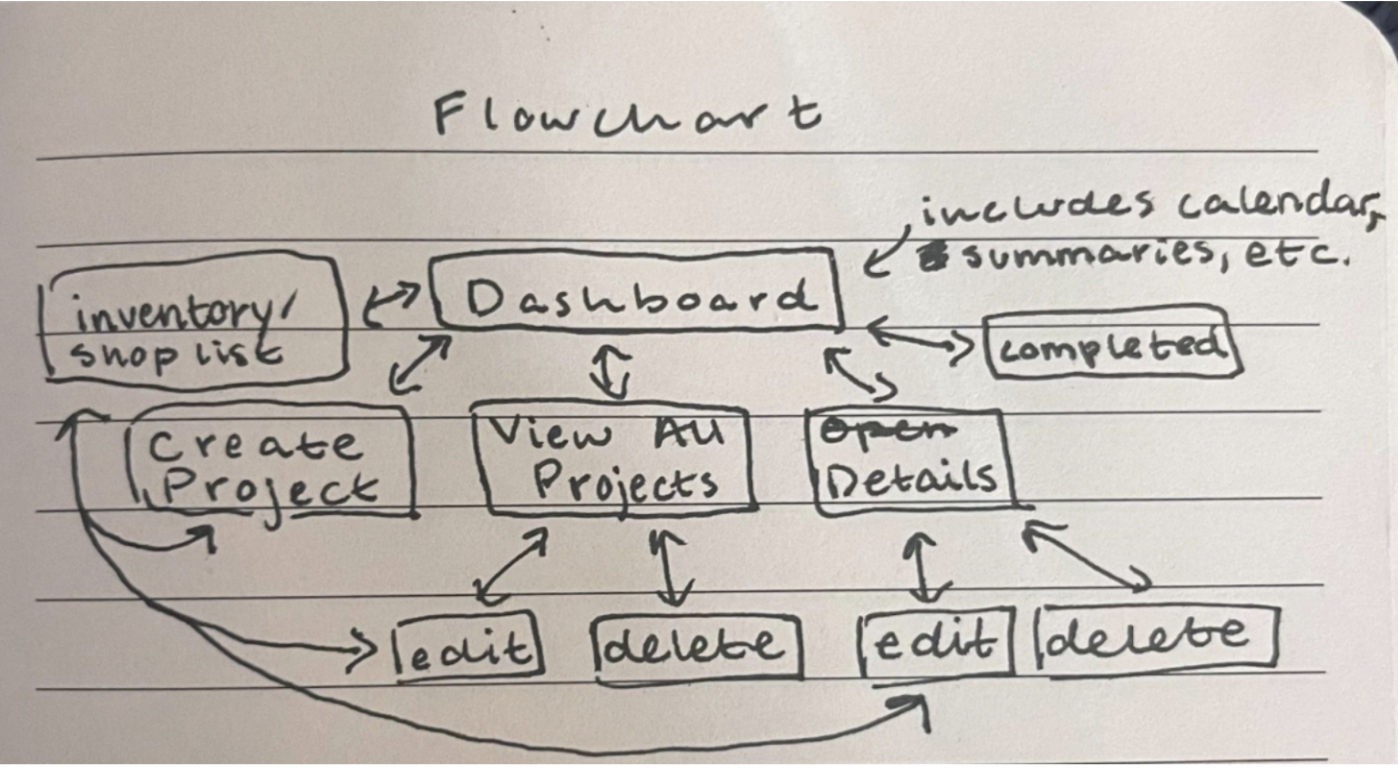 Flowchart
includes calendar,
summaries, etc.
Dashboard
inventory/
shop list
completed
Create
Project
View All
Projects
Open
Details
edit
delete
edit
delete